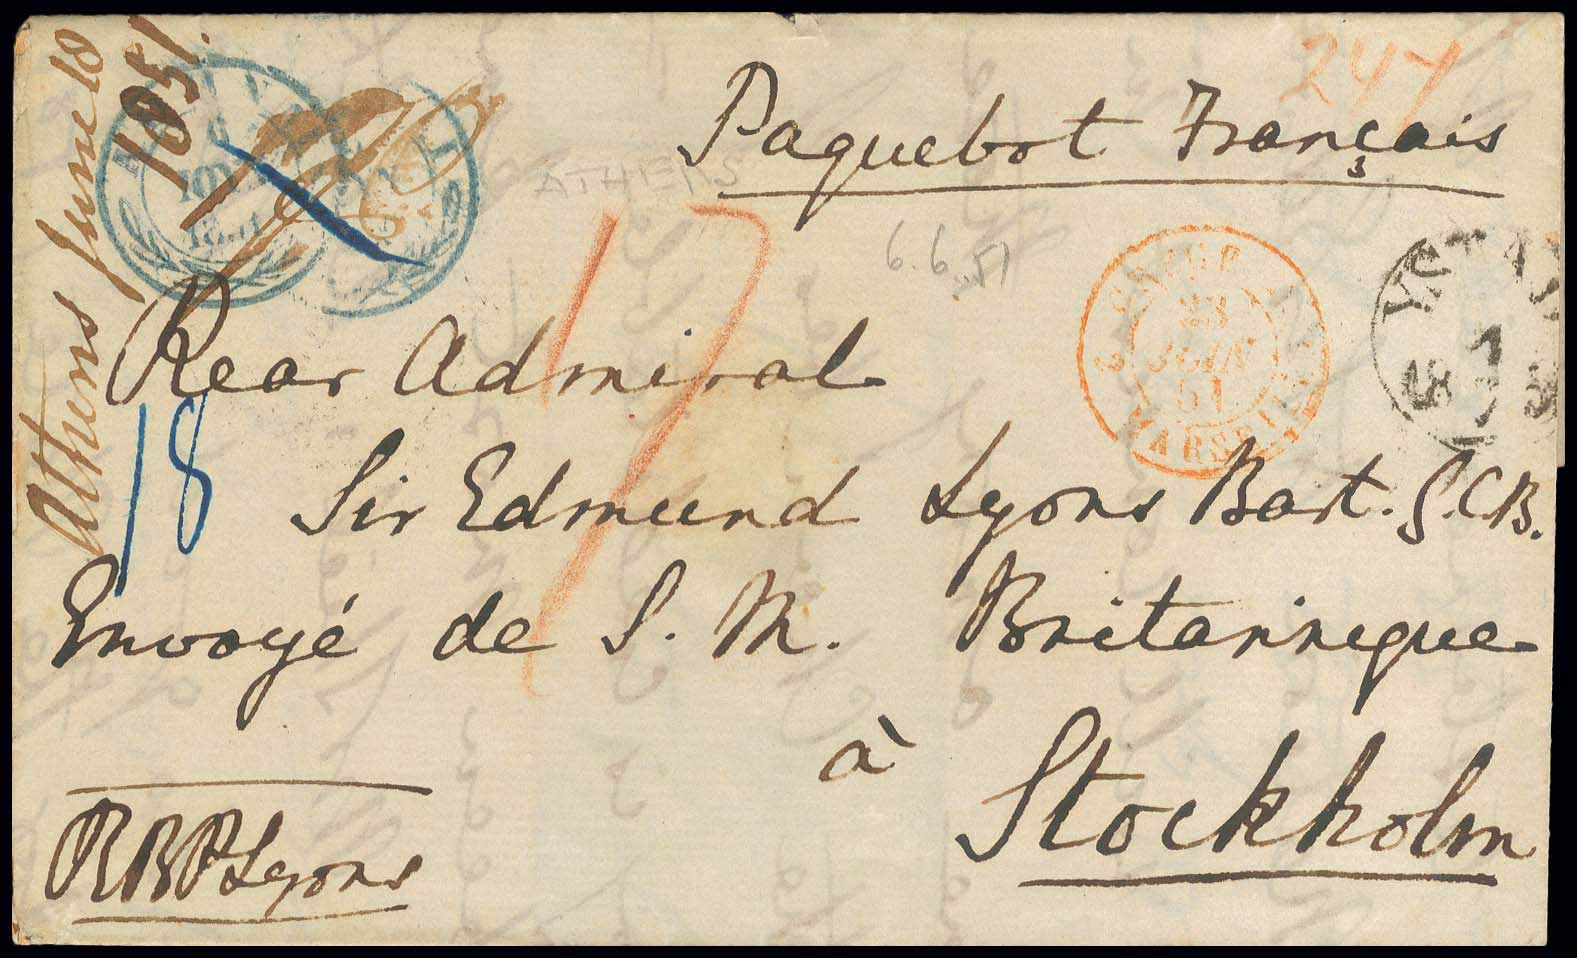 Athens June 18
1851.
Paquebot Français
247
ATHENS
6.6.51
17
23
JUIN
51
MARSEILLE
Rear Admiral
18
Sir Edmund Lyons Bart. G.C.B.
Envoyé de S. M. Britannique
à
Stockholm
RBPLyons